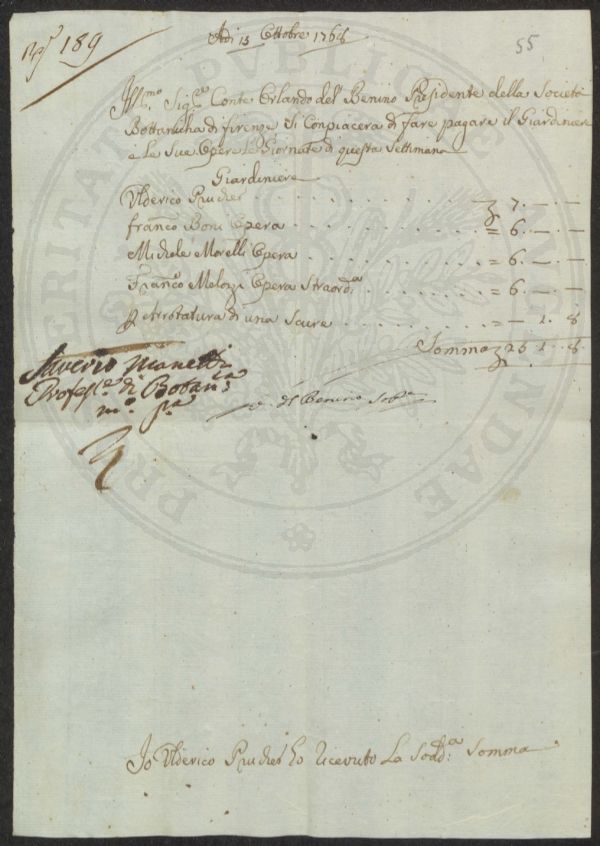 Rp.ª 189
Adi 15 Ottobre 1768
55
Ill.mo Sig.re Conte Orlando del Benino Presidente della Società
Bottanicha di firenze Si Conpiacera di fare pagare il Giardiniere
e Le Sue Opere Le Giornate di questa Settimana
Giardiniere
Ulderico Prucher . . . . . . 7. — . —
franco Boni Opera . . . . . . = 6. — . —
Michele Morelli Opera . . . . . . = 6. — . —
Franco Melozzi Opera Straord.a . . . . . . = 6. — . —
P Arrotatura di una Scure . . . . . . = — 1. 8
Somma 25 1. 8
Saverio Manetti
Profess.e di Botan.ca
m.o p.a
del Benino
Io Ulderico Prucher ho Ricevuto La Sodd.a Somma
PROSPERITATI PUBLICAE AUGENDAE